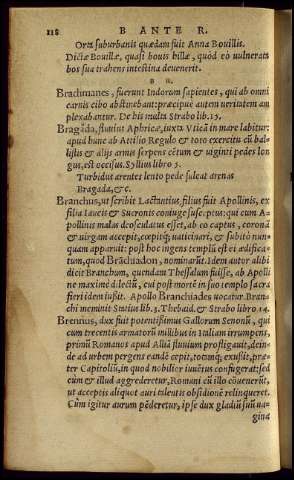 118 B ANTE R.
Orta suburbanis quædam fuit Anna Bouillis.
Dictæ Bouillæ, quasi bouis billæ, quòd eò uulneratus
bos sua trahens intestina deuenerit.
B R
Brachmanes, fuerunt Indorum sapientes, qui ab omni
carnis cibo abstinebant: præcipuè autem ueritatem am
plexabantur. De his multa Strabo lib. 15.
Bragada, fluuius Aphricæ, iuxta Vticã in mare labitur:
apud hunc ab Attilio Regulo & toto exercitu cũ bal-
listis & alijs armis serpens cẽtum & uiginti pedes lon
gus, est occisus. Syllius libro 3.
Turbidus arentes lento pede sulcat arenas
Bragada, &c.
Branchus, ut scribit Lactantius, filius fuit Apollinis, ex
filia Iaucis & Sucronis coniuge susceptus: qui cum A-
pollinis malas deosculatus esset, ab eo captus, coronã
& uirgam accepit, cœpitq; uaticinari, & subitò nun-
quam apparuit: post hoc ingens templũ est ei ædifica-
tum, quod Brãchiadon, nominarũt. Idem autor alibi
dicit Branchum, quendam Thessalum fuisse, ab Apolli
ne maximè dilectũ, cui post mortẽ in suo templo sacra
fieri idem iussit. Apollo Branchiades uocatur. Bran-
chi meminit Statius lib. 3. Thebaid. & Strabo libro 14.
Brennus, dux fuit potentissimus Gallorum Senonũ, qui
cum trecentis armatorũ millibus in Italiam irrumpens,
primũ Romanos apud Alliã fluuium profligauit, dein-
de ad urbem pergens eandẽ cepit, totamq; exussit, præ-
ter Capitoliũ, in quod nobilior iuuẽtus confugerat: sed
cum & illud aggrederetur, Romani cũ illo cõuenerũt,
ut acceptis aliquot auri talentis obsidionẽ relinqueret.
Cũm igitur aurum pẽderetur, ipse dux gladiũ suũ ua-
gina